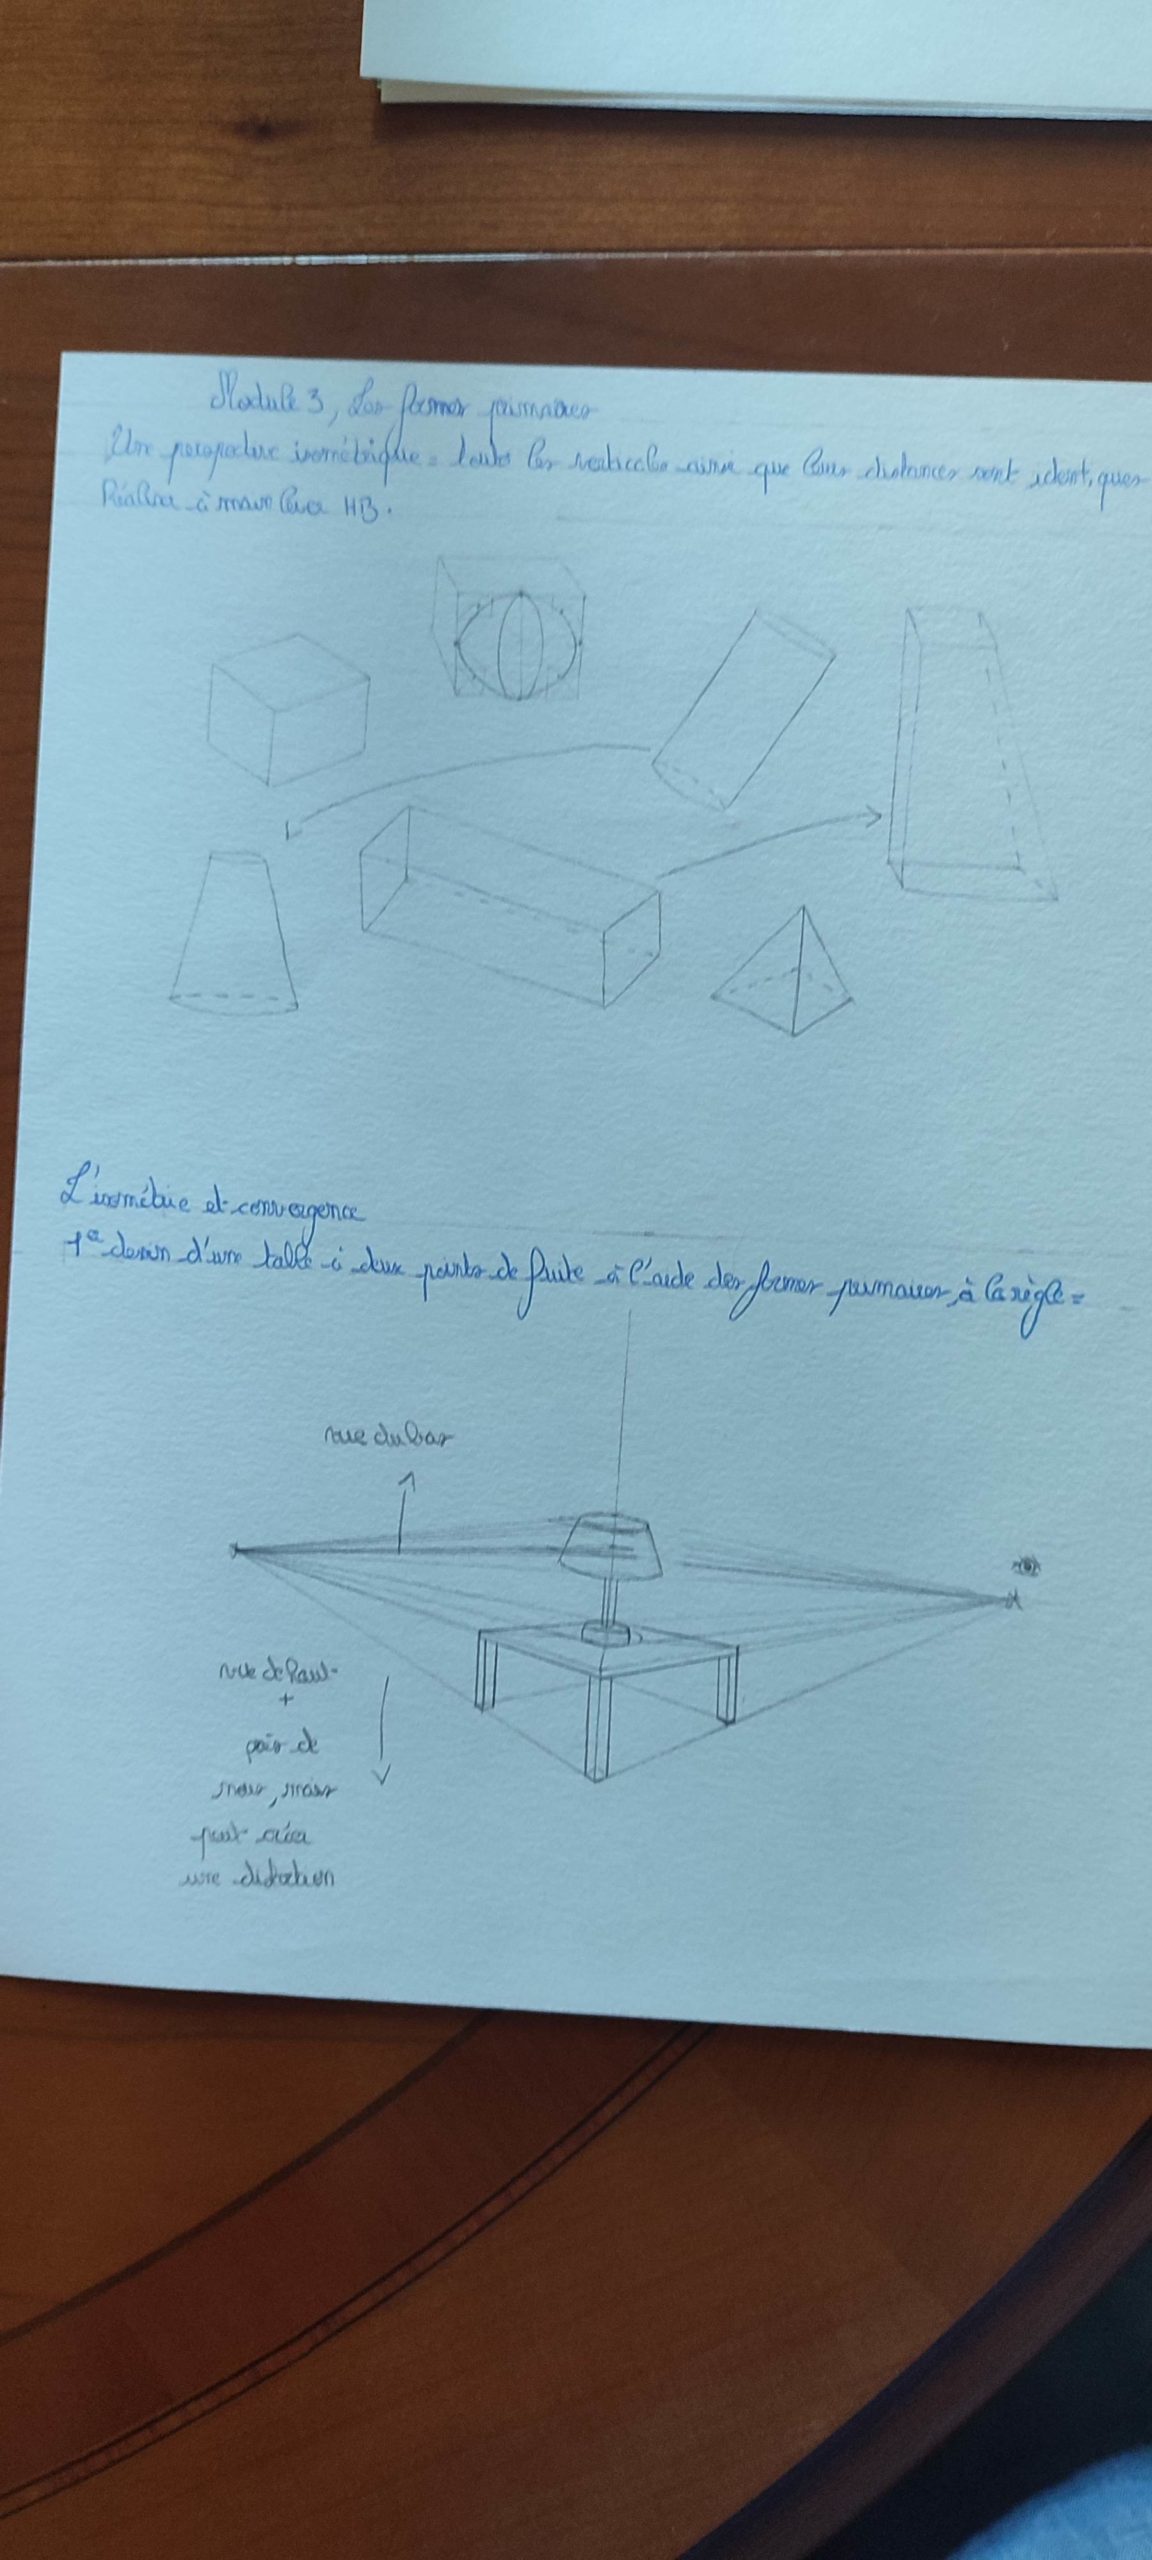 Module 3, Les formes primaires
Une perspective isométrique = toutes les verticales ainsi que leurs distances sont identiques
Réaliser à main levée HB.
L'isométrie et convergence
1er dessin d'une table à deux points de fuite à l'aide des formes primaires, à la règle =
vue du bas
vue de haut
+
près de
nous, mais
peut créer
une distortion